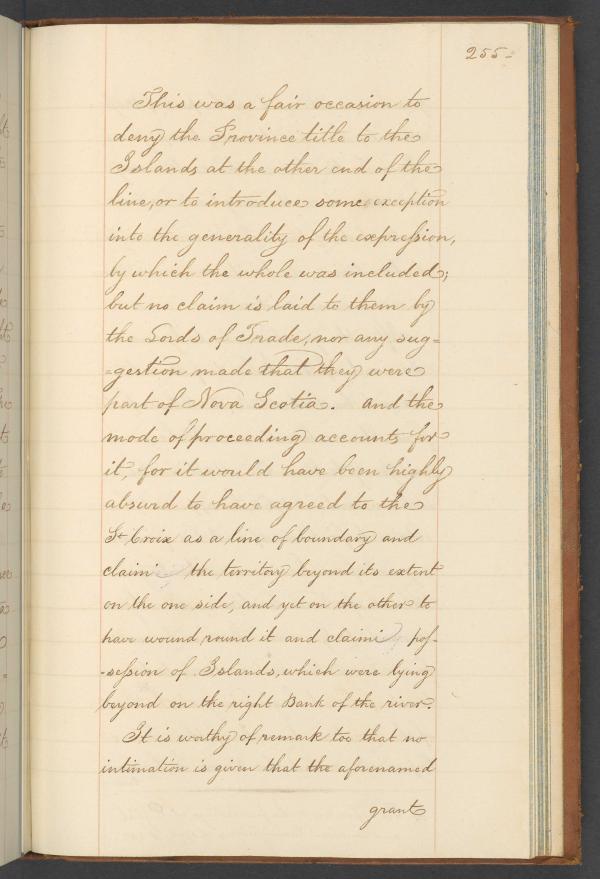 255-
This was a fair occasion to
deny the Province title to the
Islands at the other end of the
line, or to introduce some exception
into the generality of the expression,
by which the whole was included;
but no claim is laid to them by
the Lords of Trade, nor any sug=
=gestion made that they were
part of Nova Scotia. And the
mode of proceeding accounts for
it, for it would have been highly
absurd to have agreed to the
St Croix as a line of boundary and
claim the territory beyond its extent
on the one side, and yet on the other to
have wound round it and claim pos-
-session of Islands, which were lying
beyond on the right Bank of the river.
It is worthy of remark too that no
intimation is given that the aforenamed
grant